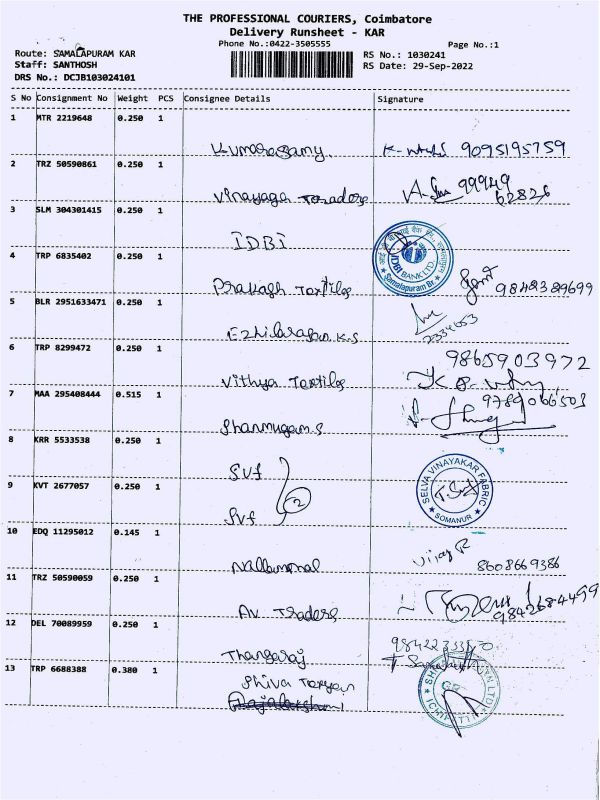 THE PROFESSIONAL COURIERS, Coimbatore
Delivery Runsheet - KAR
Phone No.:0422-3505555
Page No.:1
Route: SAMALAPURAM KAR
RS No.: 1030241
Staff: SANTHOSH
RS Date: 29-Sep-2022
DRS No.: DCJB103024101
S No Consignment No Weight PCS Consignee Details Signature
1 MTR 2219648 0.250 1
Kumarasamy 9095195759
2 TRZ 50590861 0.250 1
Vinayaga Traders 99949
62826
3 SLM 304301415 0.250 1
IDBI
IDBI BANK LTD. Samalapuram Br.
4 TRP 6835402 0.250 1
Prakash Textiles 9842389699
5 BLR 2951633471 0.250 1
Ezhilarasan K.S 2334053
6 TRP 8299472 0.250 1
9865903972
Vithya Textiles
7 MAA 295408444 0.515 1
9789066503
Shanmugam.S
8 KRR 5533538 0.250 1
SVF
2
SELVA VINAYAKAR FABRIC SOMANUR
9 KVT 2677057 0.250 1
SVF
10 EDQ 11295012 0.145 1
Nallammal Vijay R 8608669386
11 TRZ 50590059 0.250 1
AV Traders 9842684499
12 DEL 70089959 0.250 1
Thangaraj
13 TRP 6688388 0.380 1
Shiva